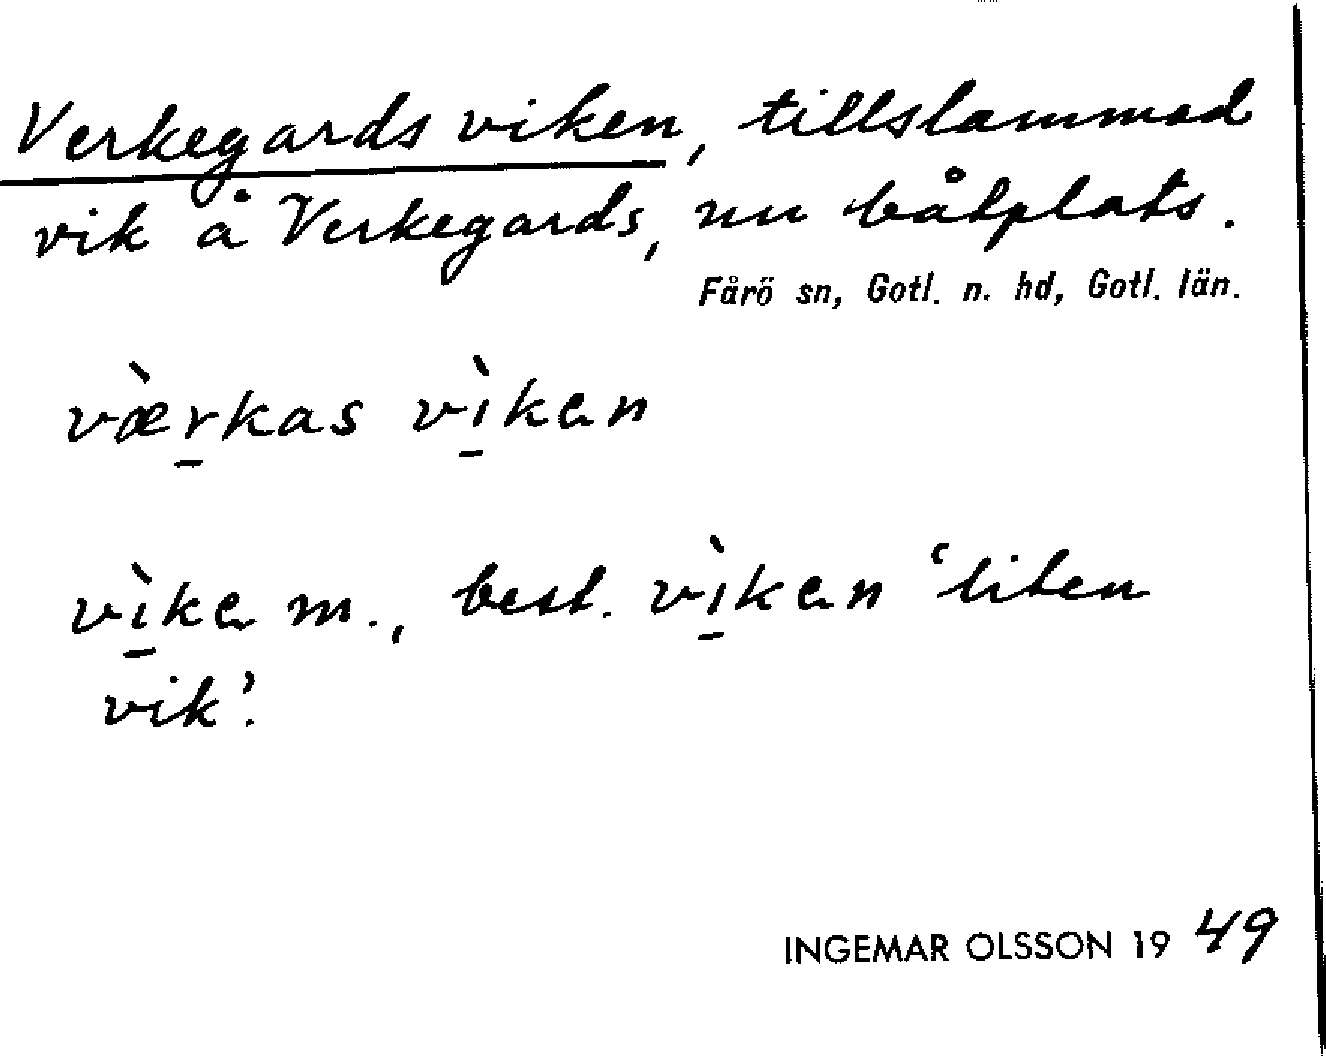 Verkegards viken, tillslammad
vik å Verkegards, nu båtplats.
Fårö sn, Gotl. n. hd, Gotl. län.
væ̀r̲kas vì̲kan
vì̲ka m., best. vì̲kan ‘liten
vik’.
INGEMAR OLSSON 1949